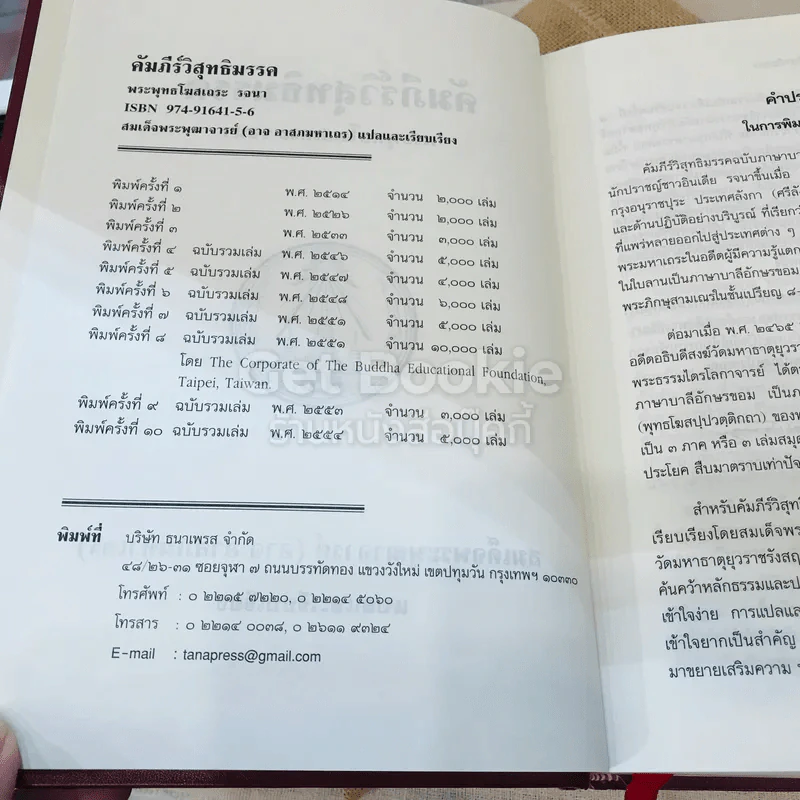 คัมภีร์วิสุทธิมรรค
พระพุทธโฆสเถระ รจนา
ISBN 974-91641-5-6
สมเด็จพระพุฒาจารย์ (อาจ อาสภมหาเถร) แปลและเรียบเรียง
พิมพ์ครั้งที่ ๑ พ.ศ. ๒๕๑๔ จำนวน ๒,๐๐๐ เล่ม
พิมพ์ครั้งที่ ๒ พ.ศ. ๒๕๒๖ จำนวน ๒,๐๐๐ เล่ม
พิมพ์ครั้งที่ ๓ พ.ศ. ๒๕๓๓ จำนวน ๓,๐๐๐ เล่ม
พิมพ์ครั้งที่ ๔ ฉบับรวมเล่ม พ.ศ. ๒๕๔๖ จำนวน ๕,๐๐๐ เล่ม
พิมพ์ครั้งที่ ๕ ฉบับรวมเล่ม พ.ศ. ๒๕๔๗ จำนวน ๔,๐๐๐ เล่ม
พิมพ์ครั้งที่ ๖ ฉบับรวมเล่ม พ.ศ. ๒๕๔๘ จำนวน ๖,๐๐๐ เล่ม
พิมพ์ครั้งที่ ๗ ฉบับรวมเล่ม พ.ศ. ๒๕๕๑ จำนวน ๕,๐๐๐ เล่ม
พิมพ์ครั้งที่ ๘ ฉบับรวมเล่ม พ.ศ. ๒๕๕๑ จำนวน ๑๐,๐๐๐ เล่ม
โดย The Corporate of The Buddha Educational Foundation,
Taipei, Taiwan.
พิมพ์ครั้งที่ ๙ ฉบับรวมเล่ม พ.ศ. ๒๕๕๓ จำนวน ๓,๐๐๐ เล่ม
พิมพ์ครั้งที่ ๑๐ ฉบับรวมเล่ม พ.ศ. ๒๕๕๔ จำนวน ๕,๐๐๐ เล่ม
Get Bookie
ร้านหนังสือบุคกี้
พิมพ์ที่ บริษัท ธนาเพรส จำกัด
๔๘/๒๖-๓๑ ซอยจุฬา ๗ ถนนบรรทัดทอง แขวงวังใหม่ เขตปทุมวัน กรุงเทพฯ ๑๐๓๓๐
โทรศัพท์ : ๐ ๒๒๑๕ ๗๒๒๐, ๐ ๒๒๑๔ ๕๐๖๐
โทรสาร : ๐ ๒๒๑๔ ๐๐๓๘, ๐ ๒๖๑๑ ๙๓๒๔
E-mail : tanapress@gmail.com
คำปร
ในการพิม
คัมภีร์วิสุทธิมรรคฉบับภาษาบา
นักปราชญ์ชาวอินเดีย รจนาขึ้นเมื่อ
กรุงอนุราชปุระ ประเทศลังกา (ศรีลั
และด้านปฏิบัติอย่างบริบูรณ์ ที่เรียกว่
ที่แพร่หลายออกไปสู่ประเทศต่าง ๆ
พระมหาเถระในอดีตผู้มีความรู้แตก
ในใบลานเป็นภาษาบาลีอักษรขอม
พระภิกษุสามเณรในชั้นเปรียญ ๘-
ต่อมาเมื่อ พ.ศ. ๒๔๖๕
อดีตอธิบดีสงฆ์วัดมหาธาตุยุวรา
พระธรรมไตรโลกาจารย์ ได้ต
ภาษาบาลีอักษรขอม เป็นภ
(พุทธโฆสปฺปวตฺติกถา) ของ
เป็น ๓ ภาค หรือ ๓ เล่มสมุ
ประโยค สืบมาตราบเท่าปัจ
สำหรับคัมภีร์วิสุทธิ
เรียบเรียงโดยสมเด็จพระ
วัดมหาธาตุยุวราชรังสฤ
ค้นคว้าหลักธรรมและป
เข้าใจง่าย การแปลแล
เข้าใจยากเป็นสำคัญ
มาขยายเสริมความ